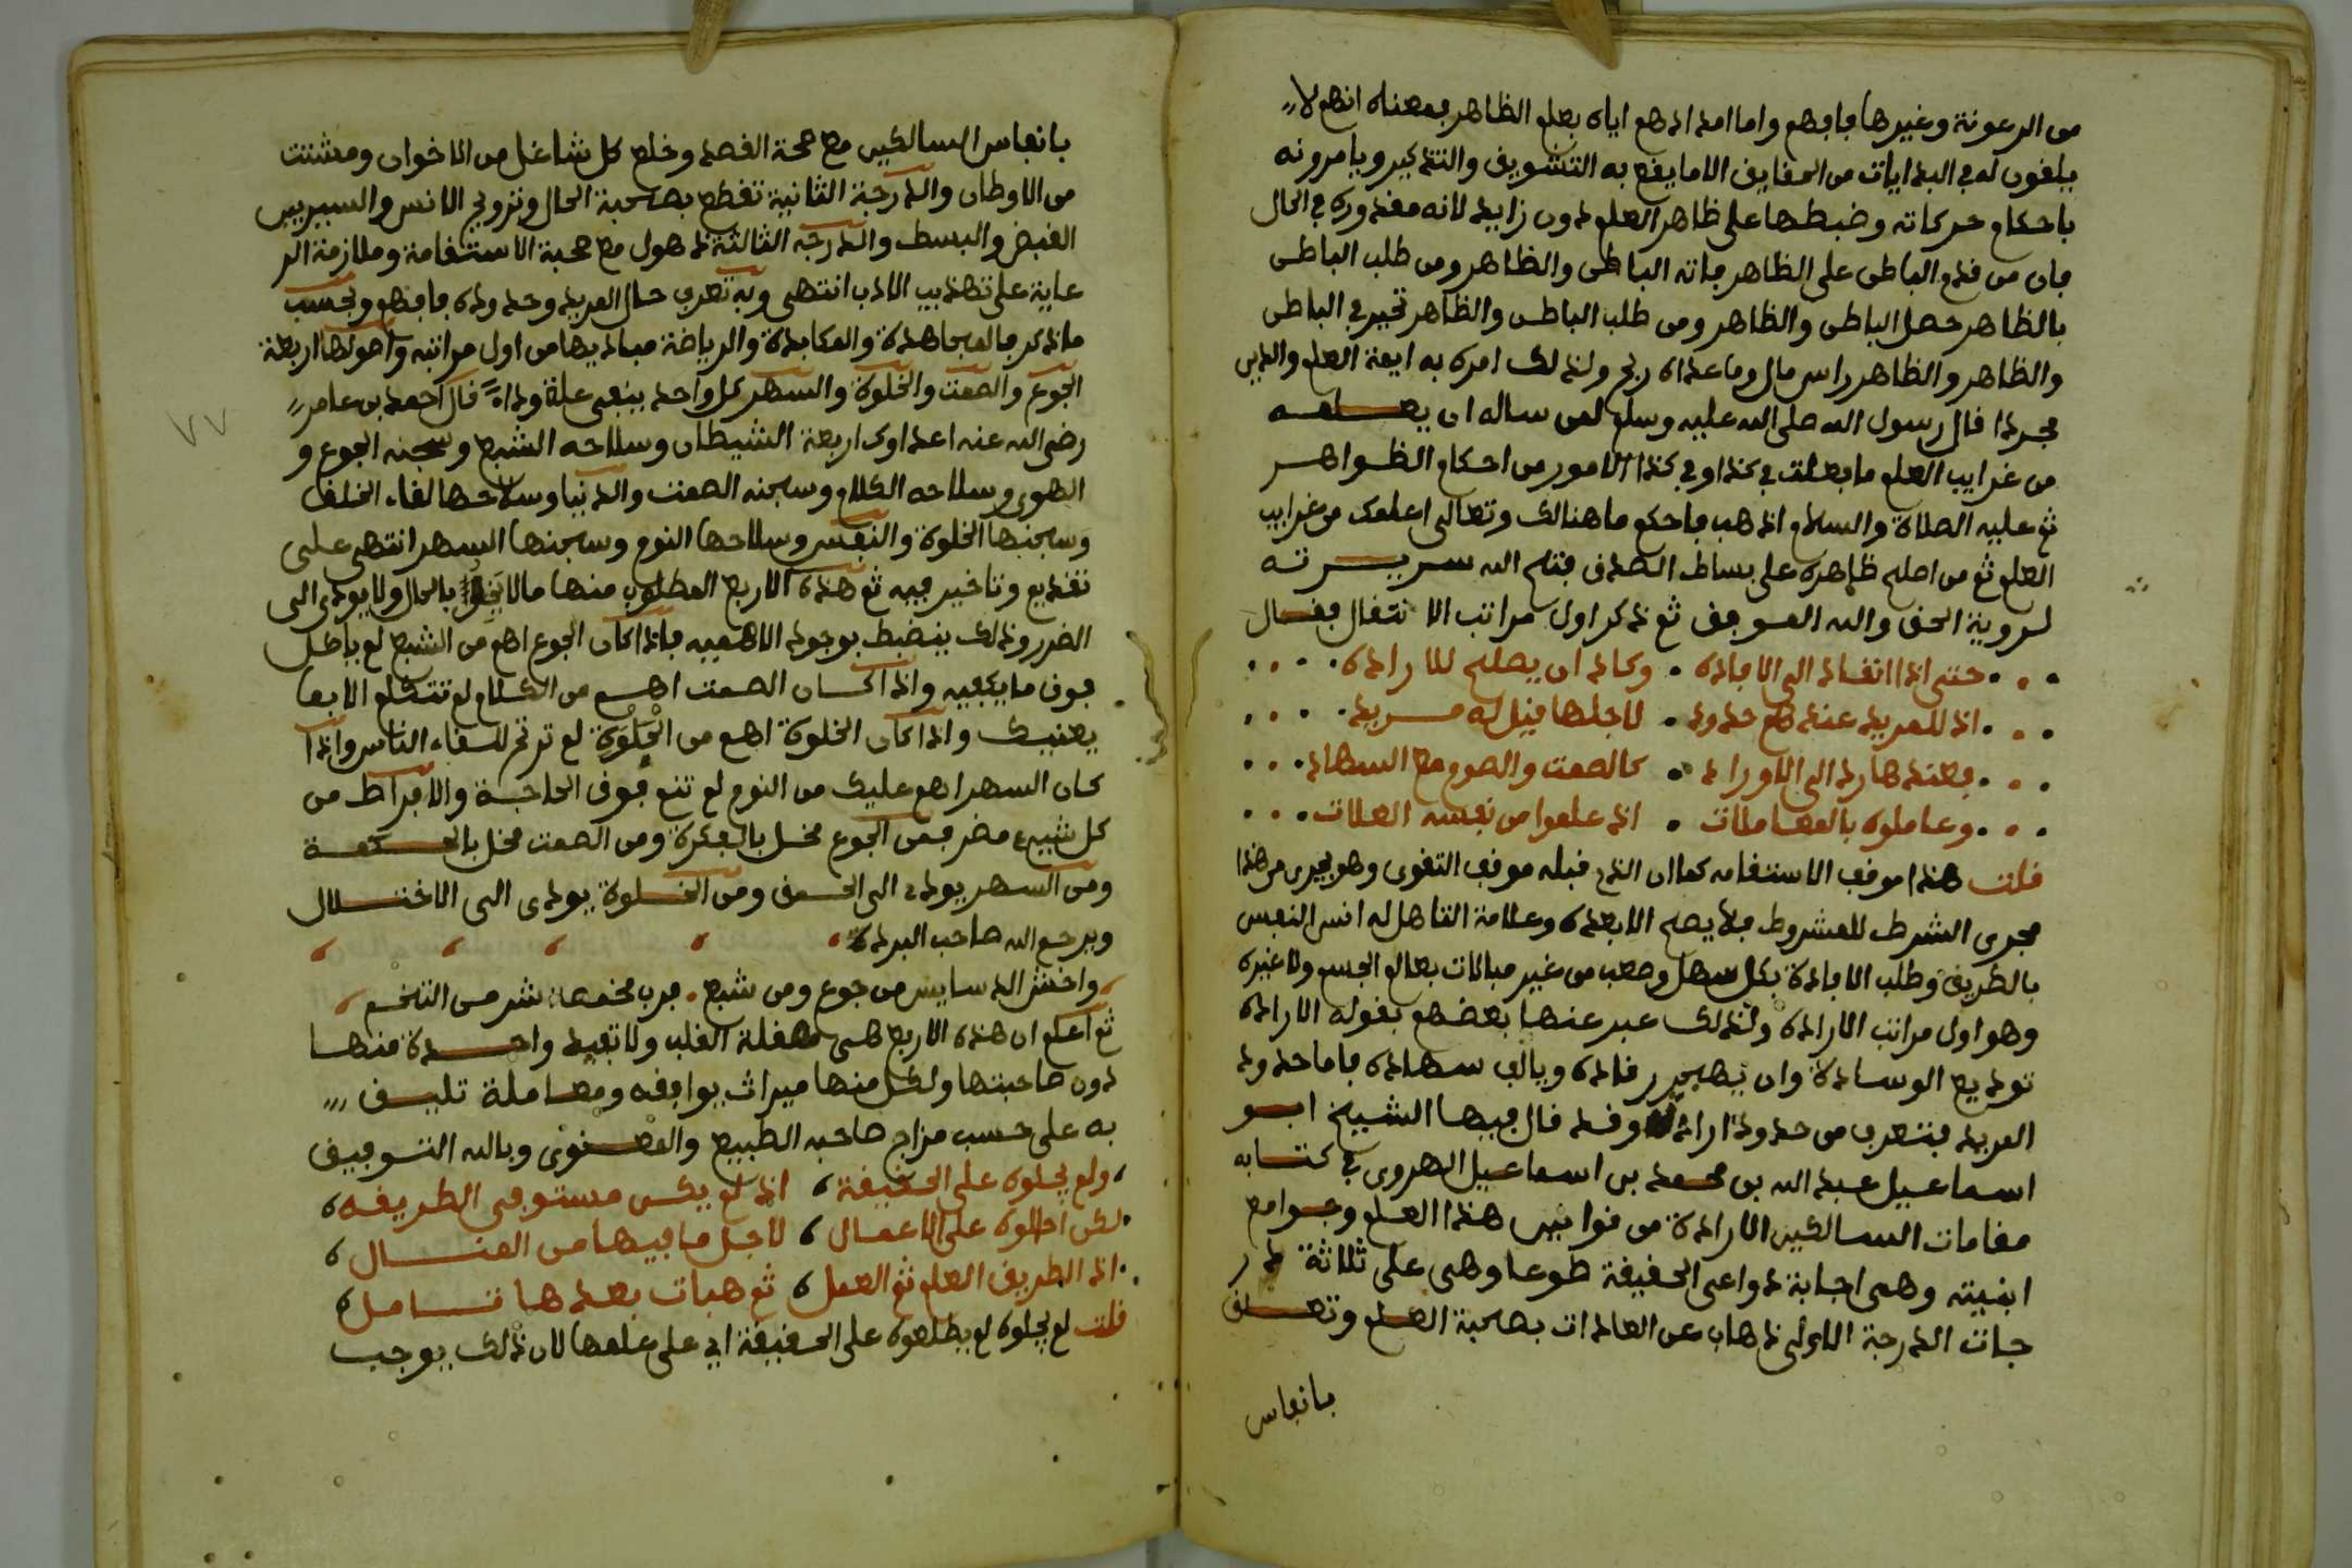 من الرعونة وغيرها فافهم واما امدادهم اياه بعلم الظاهر فمعناه انهم لا
يلقون له في البدايات من الحقايق الا ما يقع به التشويق والتذكير ويامرونه
باحكام حركاته وضبطها على ظاهر العلم دون زايد لانه مقدوره في الحال
فان من قدم الباطن على الظاهر فاته الباطن والظاهر ومن طلب الباطن
بالظاهر حصل الباطن والظاهر ومن طلب الباطن والظاهر تحير في الباطن
والظاهر والظاهر راس مال وما عداه ربح ولذلك امره به ايمة العلم والدين
مجردا قال رسول الله صلى الله عليه وسلم لمن ساله ان يعلمه
من غرايب العلم ما فعلت في كذا وفي كذا الامور من احكام الظواهر
ثم عليه الصلاة والسلام اذهب فاحكم ما هنالك وتعالى اعلمك من غرايب
العلم ثم من اصلح ظاهره على بساط الصدق فتح الله سريرته
لروية الحق والله الموفق ثم ذكر اول مراتب الانتقال فقال
حتى اذا انقاد الى الافاده وكاد ان يصلح للاراده
اذ للمريد عندهم حدود لاجلها قيل له مريد
فعندها رد الى الاوراد كالصمت والصوم مع السهاد
وعاملوه بالمعاملات اذ علموا من نفسه العلات
قلت هذا موقف الاستقامه كما ان الذي قبله موقف التقوى وهو يجرى من هذا
مجرى الشرط للمشروط فلا يصح الا بعده وعلامة التاهل له انس النفس
بالطريق وطلب الافادة بكل سهل وصعب من غير مبالات بعالم الحس ولا غيره
وهو اول مراتب الاراده ولذلك عبر عنها بعضهم بقوله الاراده
توديع الوسادة وان يهجر رقاده ويالف سهاده فاما حدود
المريد فتعرف من حدود اراده وقد قال فيها الشيخ ابو
اسماعيل عبد الله بن محمد بن اسماعيل الهروى في كتابه
مقامات السالكين الارادة من قوانين هذا العلم وجوامع
ابنيته وهى اجابة دواعى الحقيقة طوعا وهى على ثلاثة در
جات الدرجة الاولى ذهاب عن العادات بصحبة العلم وتعلق
بانفاس
بانفاس السالكين مع صحة القصد وخلع كل شاغل من الاخوان ومشتت
من الاوطان والدرجة الثانية تقطع بصحبة الحال وترويح الانس والسير بين
القبض والبسط والدرجه الثالثة ذهول مع صحبة الاستقامة وملازمة الر
عاية على تهذيب الادب انتهى وبه تعرف حال المريد وحدوده فافهم وبحسب
ما ذكر فالمجاهدة والمكابدة والرياضة مباديها من اول مراتبه واصولها اربعة
الجوع والصمت والخلوة والسهر كل واحد ينبغى علة وداء قال احمد بن عامر
رضى الله عنه اعداوك اربعة الشيطان وسلاحه الشبع وسجنه الجوع و
الهوى وسلاحه الكلام وسجنه الصمت والدنيا وسلاحها لقاء الخلق
وسجنها الخلوة والنفس وسلاحها النوم وسجنها السهر انتهى على
تقديم وتاخير فيه ثم هذه الاربع المطلوب منها ما لا يخل بالحال ولا يودى الى
الضرر وذلك ينضبط بوجود الاهم فيه فاذا كان الجوع اهم من الشبع لم ياكل
فوق ما يكفيه واذا كان الصمت اهم من الكلام لم تتكلم الا بما
يعنيك واذا كان الخلوة اهم من الجلوة لم ترتح للقاء الناس واذا
كان السهر اهم عليك من النوم لم تنم فوق الحاجة والافراط من
كل شيء مضر فمن الجوع مخل بالفكرة ومن الصمت مخل بالحكمة
ومن السهر يودى الى الحمق ومن الخلوة يودى الى الاختلال
ويرحم الله صاحب البردة
واخش الدسايس من جوع ومن شبع فرب مخمصة شر من التخم
ثم اعلم ان هذه الاربع هى صقلة القلب ولا تفيد واحدة منها
دون صاحبتها ولكل منها ميراث يوافقه ومعاملة تليق
به على حسب مزاج صاحبه الطبيع والمعنوى وبالله التوفيق
ولم يحلوه على الحقيقة اذ لم يكن مستوفى الطريقه
لكن احالوه على الاعمال لاجل ما فيها من المنال
اذ الطريق العلم ثم العمل ثم هبات بعدها تامل
قلت لم يحلوه لم يطلعوه على الحقيقة اى على علمها لان ذلك يوجب